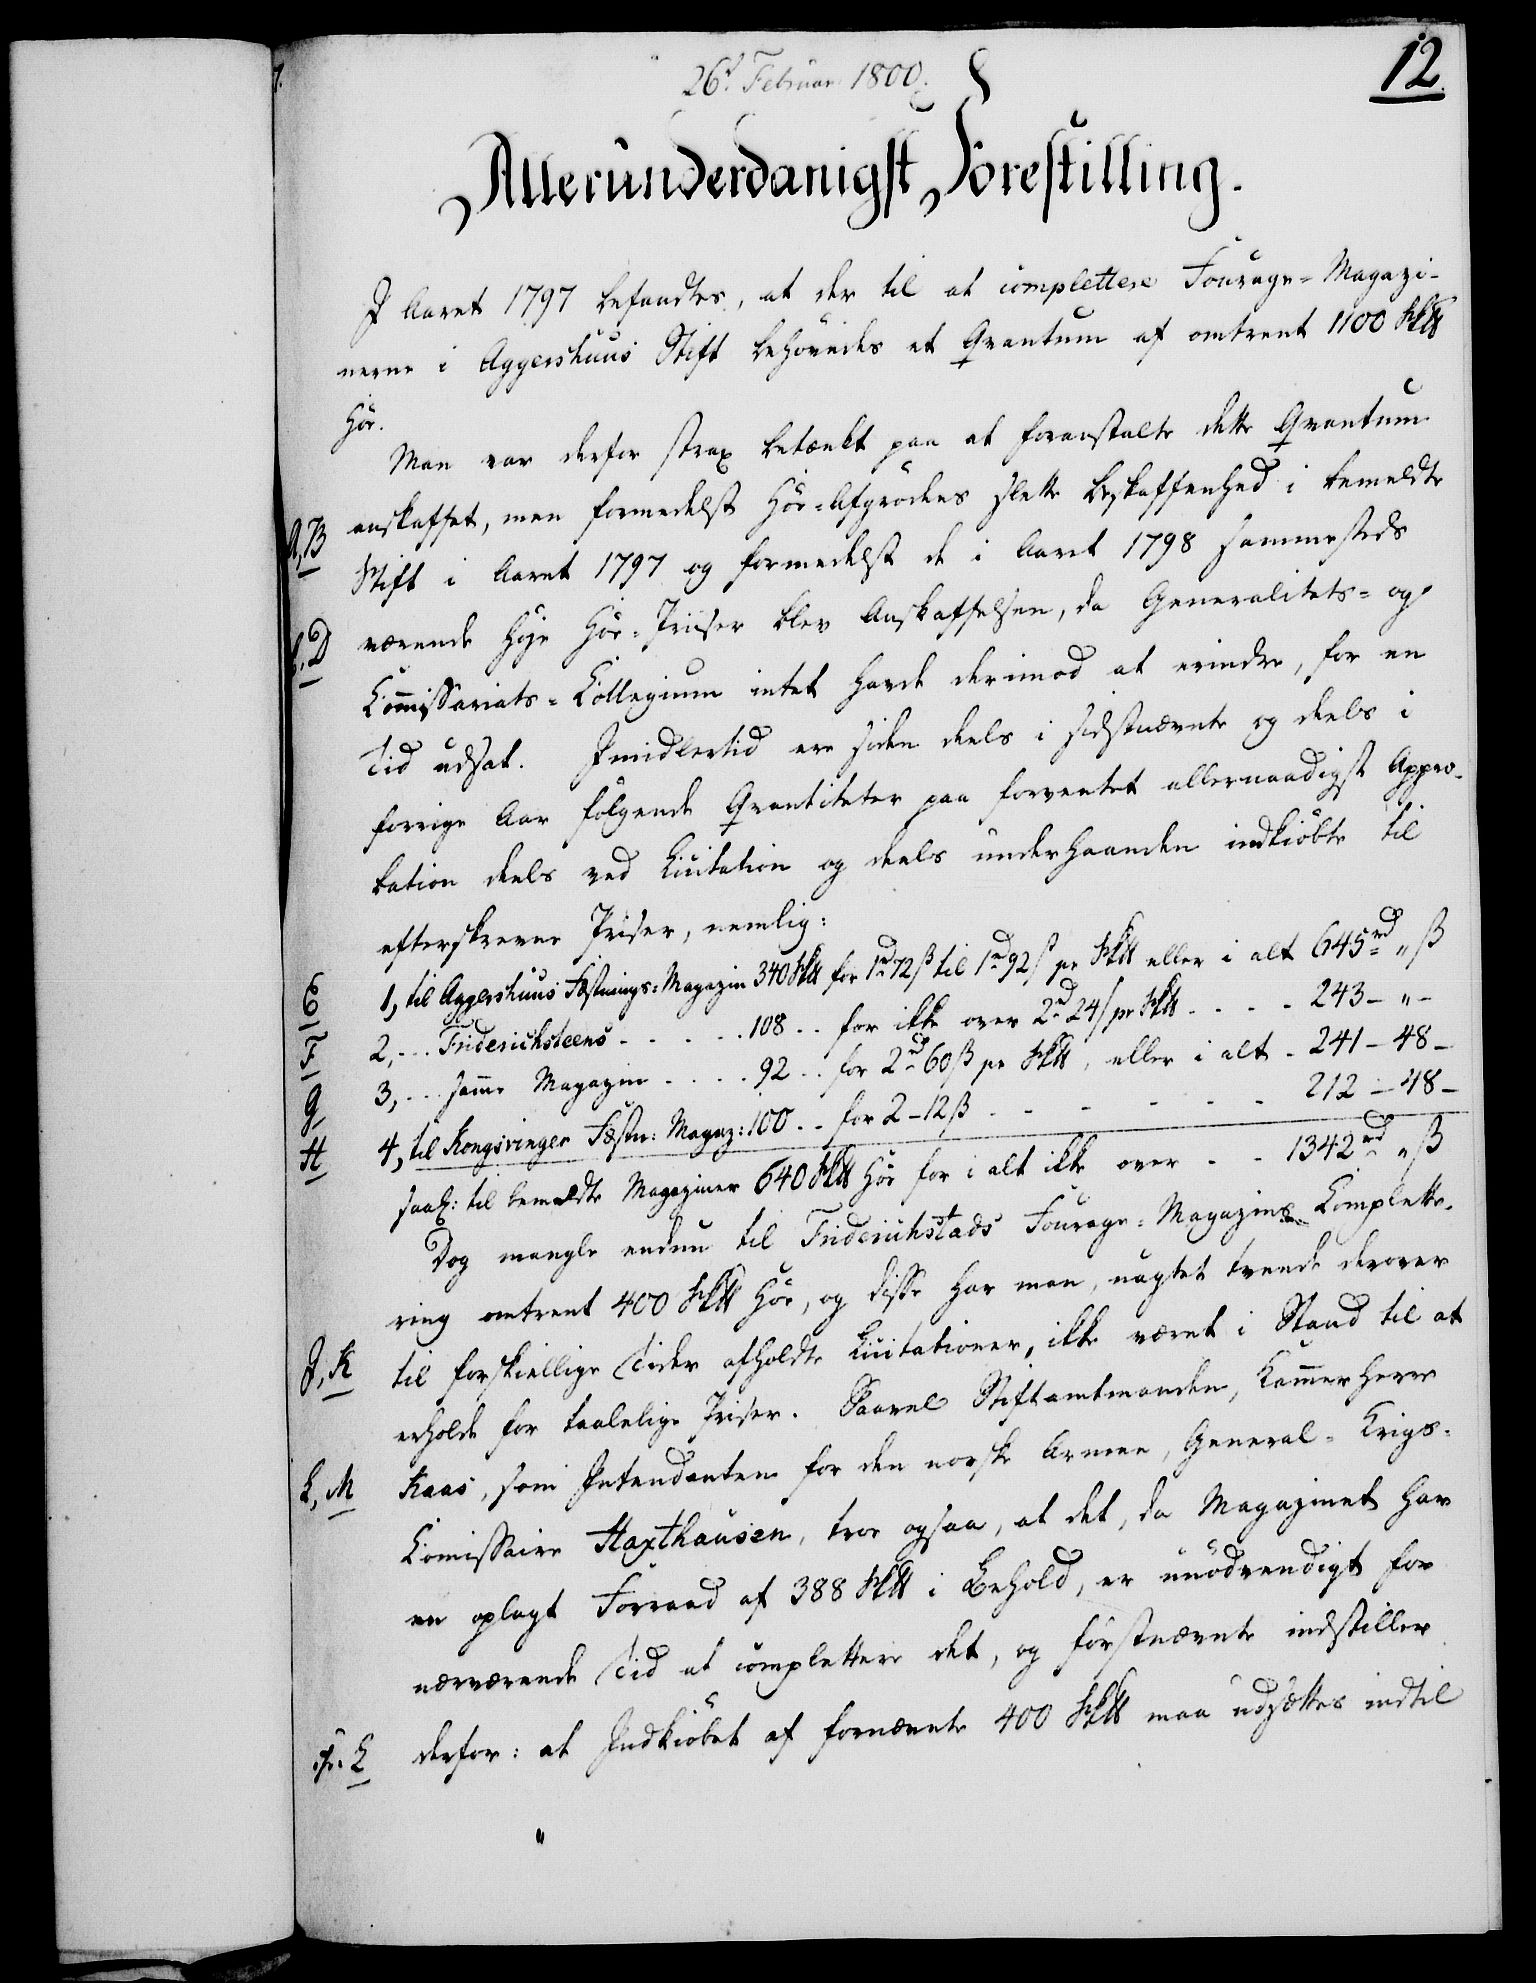 12.
26d Februar 1800.
Allerunderdanigst Forestilling.
I Aaret 1797 befandtes, at der til at complettere Fourage-Magazi-
nerne i Aggershuus Stift behøvedes et Qvantum af omtrent 1100 Sk℔
Høe.
Man var derfor strax betænkt paa at foranstalte dette Qvantum
A, B anskaffet, men formedelst Høe-Afgrødens slette Beskaffenhed i bemeldte
Stift i Aaret 1797 og formedelst de i Aaret 1798 sammesteds
C, D værende høje Høe-Priser blev Anskaffelsen, da Generalitets- og
Commissariats-Collegium intet havde derimod at erindre, for en
Tid udsat. Imidlertid ere siden deels i sidstnævnte og deels i
forrige Aar følgende Qvantiteter paa forventet allernaadigst Appro-
bation deels ved Licitation og deels underhaanden indkiøbte til
efterskrevne Priser, nemlig:
E 1, til Aggershuus Fæstnings-Magazin 340 Sk℔ for 1rd 72ß til 1rd 92ß pr Sk℔ eller i alt 645rd „ß
F 2, -.. Friderichsteens - - - - - 108 .. for ikke over 2rd 24ß pr Sk℔ - - - - 243 - „ -
G 3, -.. samme Magazin - - - - 92 .. for 2rd 60ß pr Sk℔, eller i alt - 241 - 48 -
H 4, til Kongsvinger Fæstn: Magaz: 100 .. for 2 - 12ß - - - - - - 212 - 48 -
saal: til bemeldte Magaziner 640 Sk℔ Høe for i alt ikke over - - 1342rd „ß
Dog mangle endnu til Friderichstads Fourage-Magazins Complette-
ring omtrent 400 Sk℔ Høe, og disse har man, uagtet tvende derover
I, K til forskiellige Tider afholdte Licitationer, ikke været i Stand til at
erholde for taalelige Priser. Saavel Stiftamtmanden, Kammerherre
L, M Kaas, som Intendanten for den norske Armee, General-Krigs-
Comissaire Haxthausen, troe ogsaa, at det, da Magazinet har
en oplagt Forraad af 388 Sk℔ i Behold, er unødvendigt for
nærværende Tid at complettere det, og førstnævnte indstiller
L derfor: at Indkiøbet af fornævnte 400 Sk℔ maa udsættes indtil